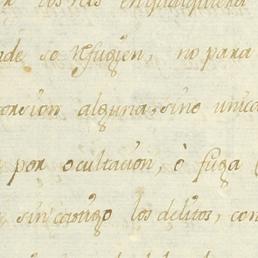 los reis en qualquiera
nde se refugien, no para
torsion alguna, sino unica
por ocultacion, ò fuga
sin castigo los delitos, con